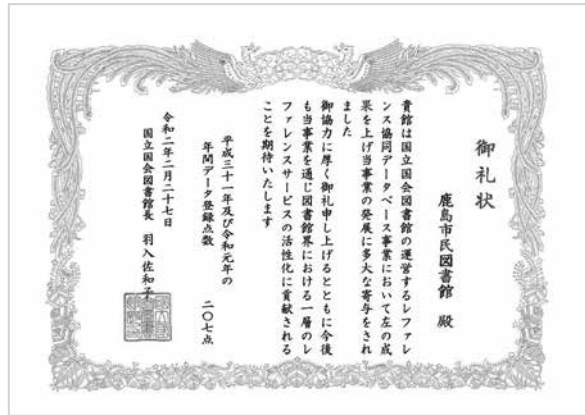 御礼状
鹿島市民図書館 殿
貴館は国立国会図書館の運営するレファレ
ンス協同データベース事業において左の成
果を上げ当事業の発展に多大な寄与をされ
ました
御協力に厚く御礼申し上げるとともに今後
も当事業を通じ図書館界における一層のレ
ファレンスサービスの活性化に貢献される
ことを期待いたします
平成三十一年及び令和元年の
年間データ登録点数 二〇七点
令和二年二月二十七日
国立国会図書館長 羽入佐和子